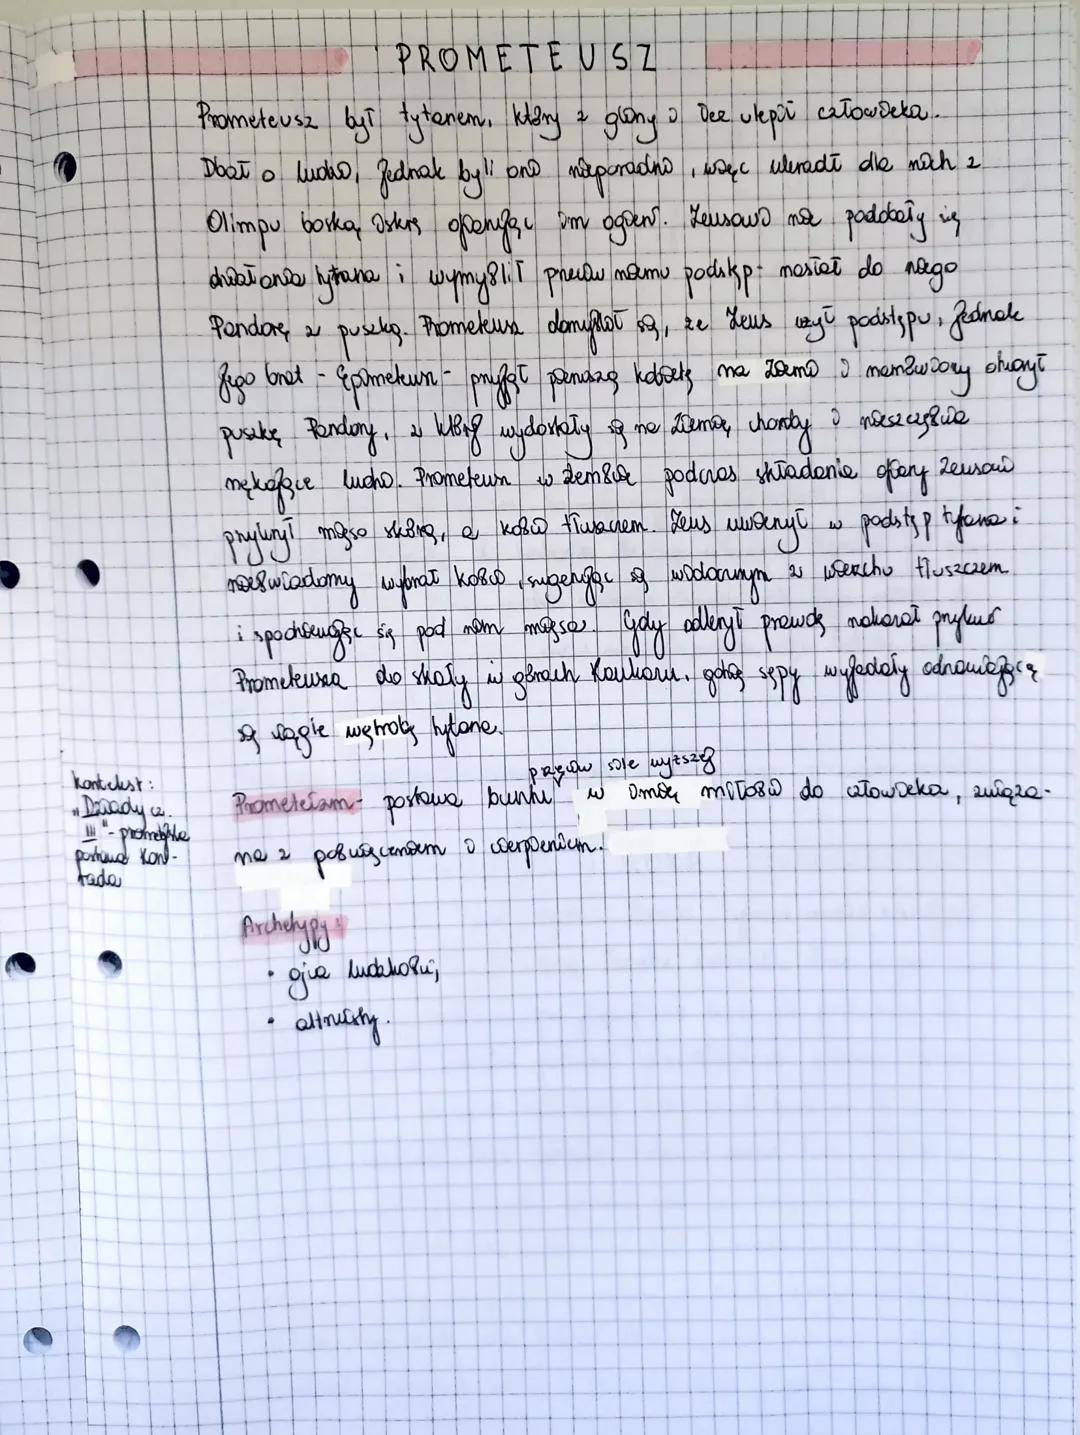 PROMETEUSZ
Prometeusz był tytanem, który z gliny i łez ulepił człowieka.
Dbał o ludzi, jednak byli oni nieporadni, więc ukradł dla nich z
Olimpu boską iskrę ofiarując im ogień. Zeusowi nie podobały się
działania tytana i wymyślił przeciw niemu podstęp - zesłał do niego
Pandorę z puszką. Prometeusz domyślał się, że Zeus użył podstępu, jednak
jego brat - Epimeteusz - przyjął pierwszą kobietę na Ziemi i namówiony otworzył
puszkę Pandory, z której wydostały się na Ziemię choroby i nieszczęścia
nękające ludzi. Prometeusz w zemście podczas składania ofiary Zeusowi
przykrył mięso skórą, a kości tłuszczem. Zeus uwierzył w podstęp tytana i
nieświadomy wybrał kości, sugerując się widocznym z wierzchu tłuszczem
i spodziewając się pod nim mięsa. Gdy odkrył prawdę nakazał przykuć
Prometeusza do skały w górach Kaukazu, gdzie sępy wyjadały odnawiającą
się ciągle wątrobę tytana.
przeciw sile wyższej
Prometeizm - postawa buntu w imię miłości do człowieka, związa-
na z poświęceniem i cierpieniem.
Kontekst:
"Dziady cz.
III" - prometejska
postawa Kon-
rada
Archetypy:
• ojca ludzkości;
• altruisty.